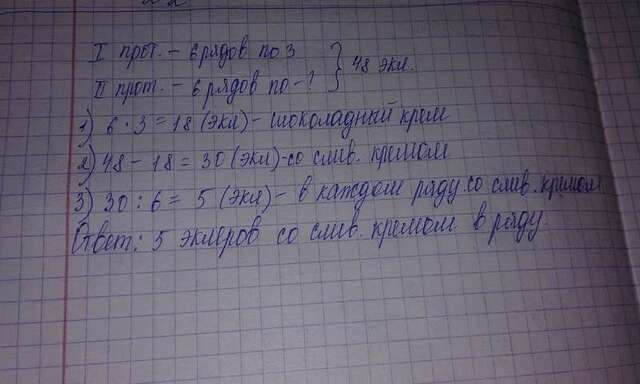 I прот. - 6 рядов по 3
} 48 экл.
II прот. - 6 рядов по - ?
1) 6 · 3 = 18 (экл) - шоколадный крем
2) 48 - 18 = 30 (экл) - со слив. кремом
3) 30 : 6 = 5 (экл) - в каждом ряду со слив. кремом
Ответ: 5 эклеров со слив. кремом в ряду.